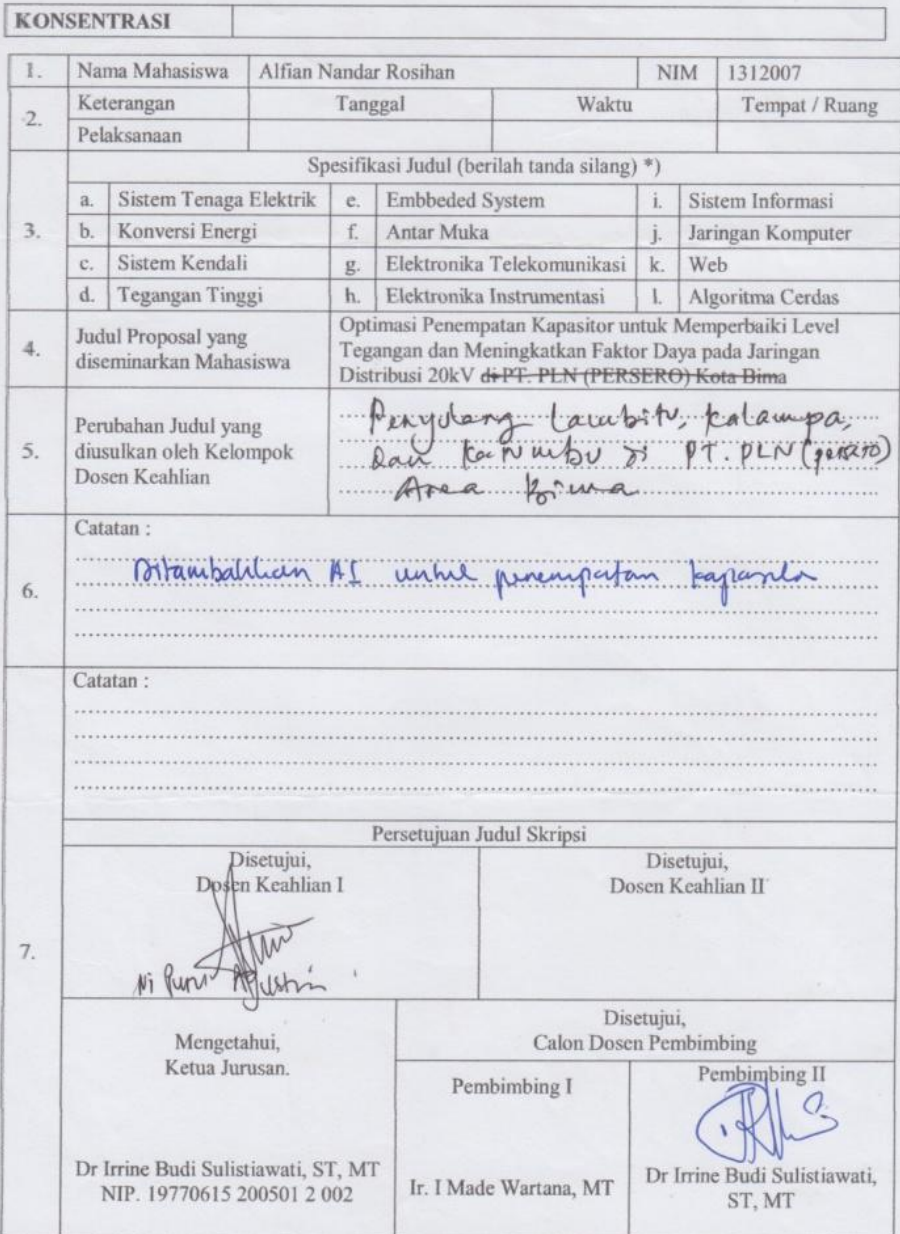 KONSENTRASI
1. Nama Mahasiswa Alfian Nandar Rosihan NIM 1312007
2. Keterangan Tanggal Waktu Tempat / Ruang
Pelaksanaan
3. Spesifikasi Judul (berilah tanda silang) *)
a. Sistem Tenaga Elektrik e. Embbeded System i. Sistem Informasi
b. Konversi Energi f. Antar Muka j. Jaringan Komputer
c. Sistem Kendali g. Elektronika Telekomunikasi k. Web
d. Tegangan Tinggi h. Elektronika Instrumentasi l. Algoritma Cerdas
4. Judul Proposal yang
diseminarkan Mahasiswa
Optimasi Penempatan Kapasitor untuk Memperbaiki Level
Tegangan dan Meningkatkan Faktor Daya pada Jaringan
Distribusi 20kV di PT. PLN (PERSERO) Kota Bima
5. Perubahan Judul yang
diusulkan oleh Kelompok
Dosen Keahlian
Penyulang kalampa,
dan di PT. PLN (persero)
Area Bima
6. Catatan :
Ditambahkan AI untuk penempatan kapasitor
7. Catatan :
Persetujuan Judul Skripsi
Disetujui,
Dosen Keahlian I
Ni Putu Agustini
Disetujui,
Dosen Keahlian II
Mengetahui,
Ketua Jurusan.
Dr Irrine Budi Sulistiawati, ST, MT
NIP. 19770615 200501 2 002
Disetujui,
Calon Dosen Pembimbing
Pembimbing I
Ir. I Made Wartana, MT
Pembimbing II
Dr Irrine Budi Sulistiawati,
ST, MT